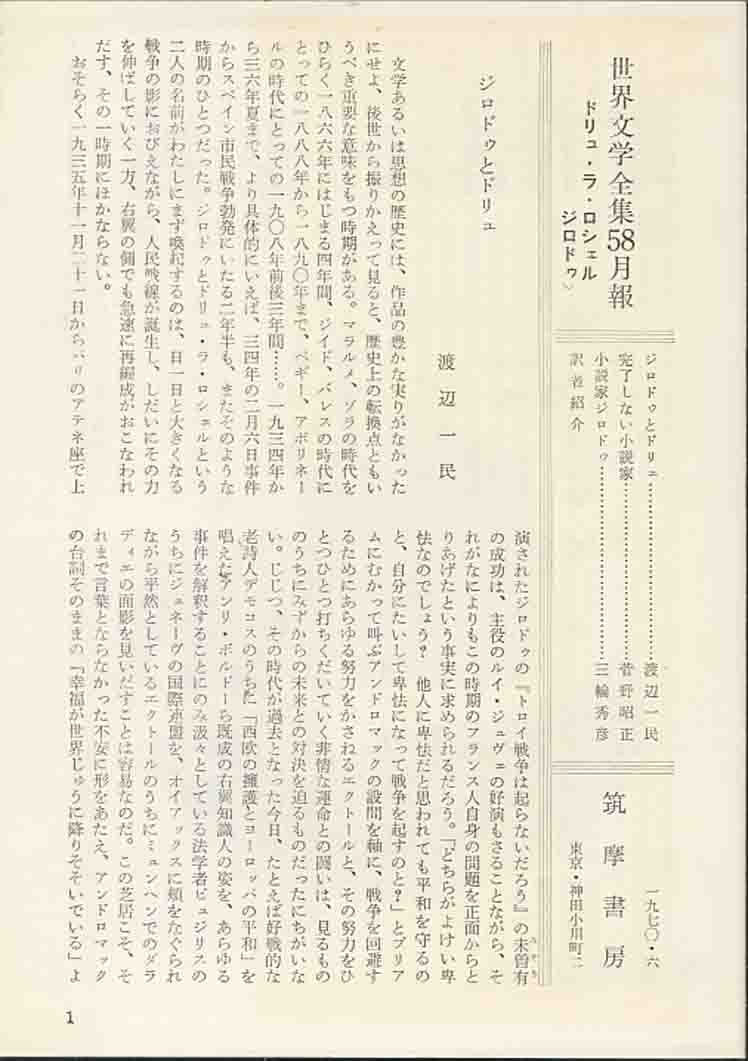 世界文学全集58月報
ドリュ・ラ・ロシェル
ジロドゥ〉
ジロドゥとドリュ……………………渡辺一民
完了しない小説家……………………菅野昭正
小説家ジロドゥ………………………三輪秀彦
訳者紹介
一九七〇・六
筑摩書房
東京・神田小川町二
ジロドゥとドリュ
渡辺一民
文学あるいは思想の歴史には、作品の豊かな実りがなかった
にせよ、後世から振りかえって見ると、歴史上の転換点ともい
うべき重要な意味をもつ時期がある。マラルメ、ゾラの時代を
ひらく一八六六年にはじまる四年間、ジイド、バレスの時代に
とっての一八八八年から一八九〇年まで、ペギー、アポリネー
ルの時代にとっての一九〇八年前後三年間……。一九三四年か
ら三六年夏まで、より具体的にいえば、三四年の二月六日事件
からスペイン市民戦争勃発にいたる二年半も、またそのような
時期のひとつだった。ジロドゥとドリュ・ラ・ロシェルという
二人の名前がわたしにまず喚起するのは、日一日と大きくなる
戦争の影におびえながら、人民戦線が誕生し、しだいにその力
を伸ばしていく一方、右翼の側でも急速に再編成がおこなわれ
だす、その一時期にほかならない。
おそらく一九三五年十一月二十一日からパリのアテネ座で上
演されたジロドゥの『トロイ戦争は起らないだろう』の未曽有
みぞう
の成功は、主役のルイ・ジュヴェの好演もさることながら、そ
れがなによりもこの時期のフランス人自身の問題を正面からと
りあげたという事実に求められるだろう。「どちらがよけい卑
怯なのでしょう？　他人に卑怯だと思われても平和を守るの
と、自分にたいして卑怯になって戦争を起すのと？」とプリア
ムにむかって叫ぶアンドロマックの設問を軸に、戦争を回避す
るためにあらゆる努力をかさねるエクトールと、その努力をひ
とつひとつ打ちくだいていく非情な運命との闘いは、見るもの
のうちにみずからの未来との対決を迫るものだったにちがいな
い。じじつ、その時代が過去となった今日、たとえば好戦的な
老詩人デモコスのうちに「西欧の擁護とヨーロッパの平和」を
唱えたアンリ・ボルドーら既成の右翼知識人の姿を、あらゆる
事件を解釈することにのみ汲々としている法学者ビュジリスの
うちにジュネーヴの国際連盟を、オイアックスに頬をなぐられ
ながら平然としているエクトールのうちにミュンヘンでのダラ
ディエの面影を見いだすことは容易なのだ。この芝居こそ、そ
れまで言葉とならなかった不安に形をあたえ、アンドロマック
の台詞そのままの「幸福が世界じゅうに降りそそいでいる」よ
1